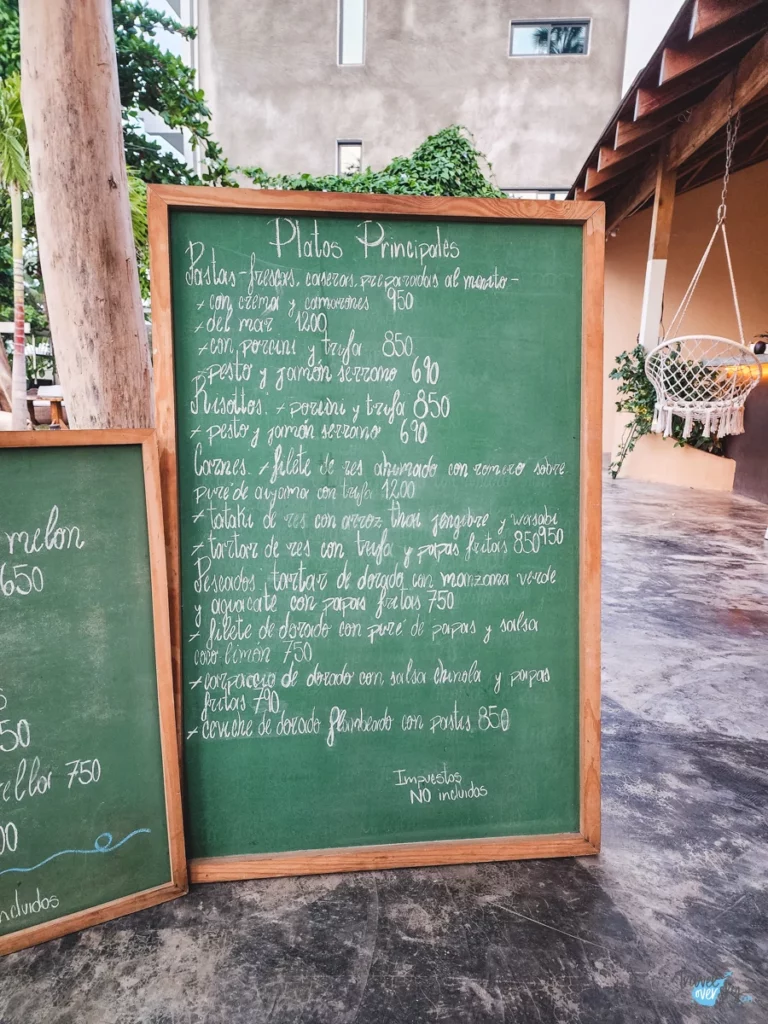 Platos Principales
Pastas - frescas, caseras, preparadas al momento -
+ con crema y camarones 950
+ del mar 1200
+ con porcini y trufa 850
+ pesto y jamón serrano 690
Risottos: + porcini y trufa 850
+ pesto y jamón serrano 690
Carnes: + filete de res ahumado con romero sobre
puré de auyama con trufa 1200
+ tataki de res con arroz thai jengibre y wasabi
950
+ tartar de res con trufa y papas fritas 850
Pescados: tartar de dorado con manzana verde
y aguacate con papas fritas 750
+ filete de dorado con puré de papas y salsa
coco limon 750
+ carpaccio de dorado con salsa chinola y papas
fritas 790
+ ceviche de dorado flambeado con pastis 850
Impuestos
NO incluidos
melon
650
50
750
00
ncluidos
over